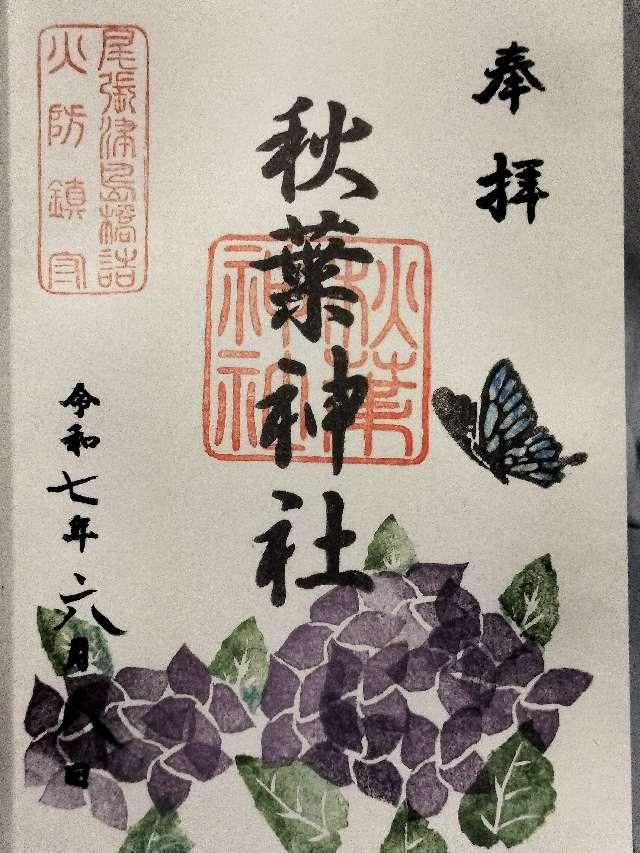 奉拝
秋葉神社
秋葉神社
尾張津島橋詰
火防鎮守
令和七年六月八日